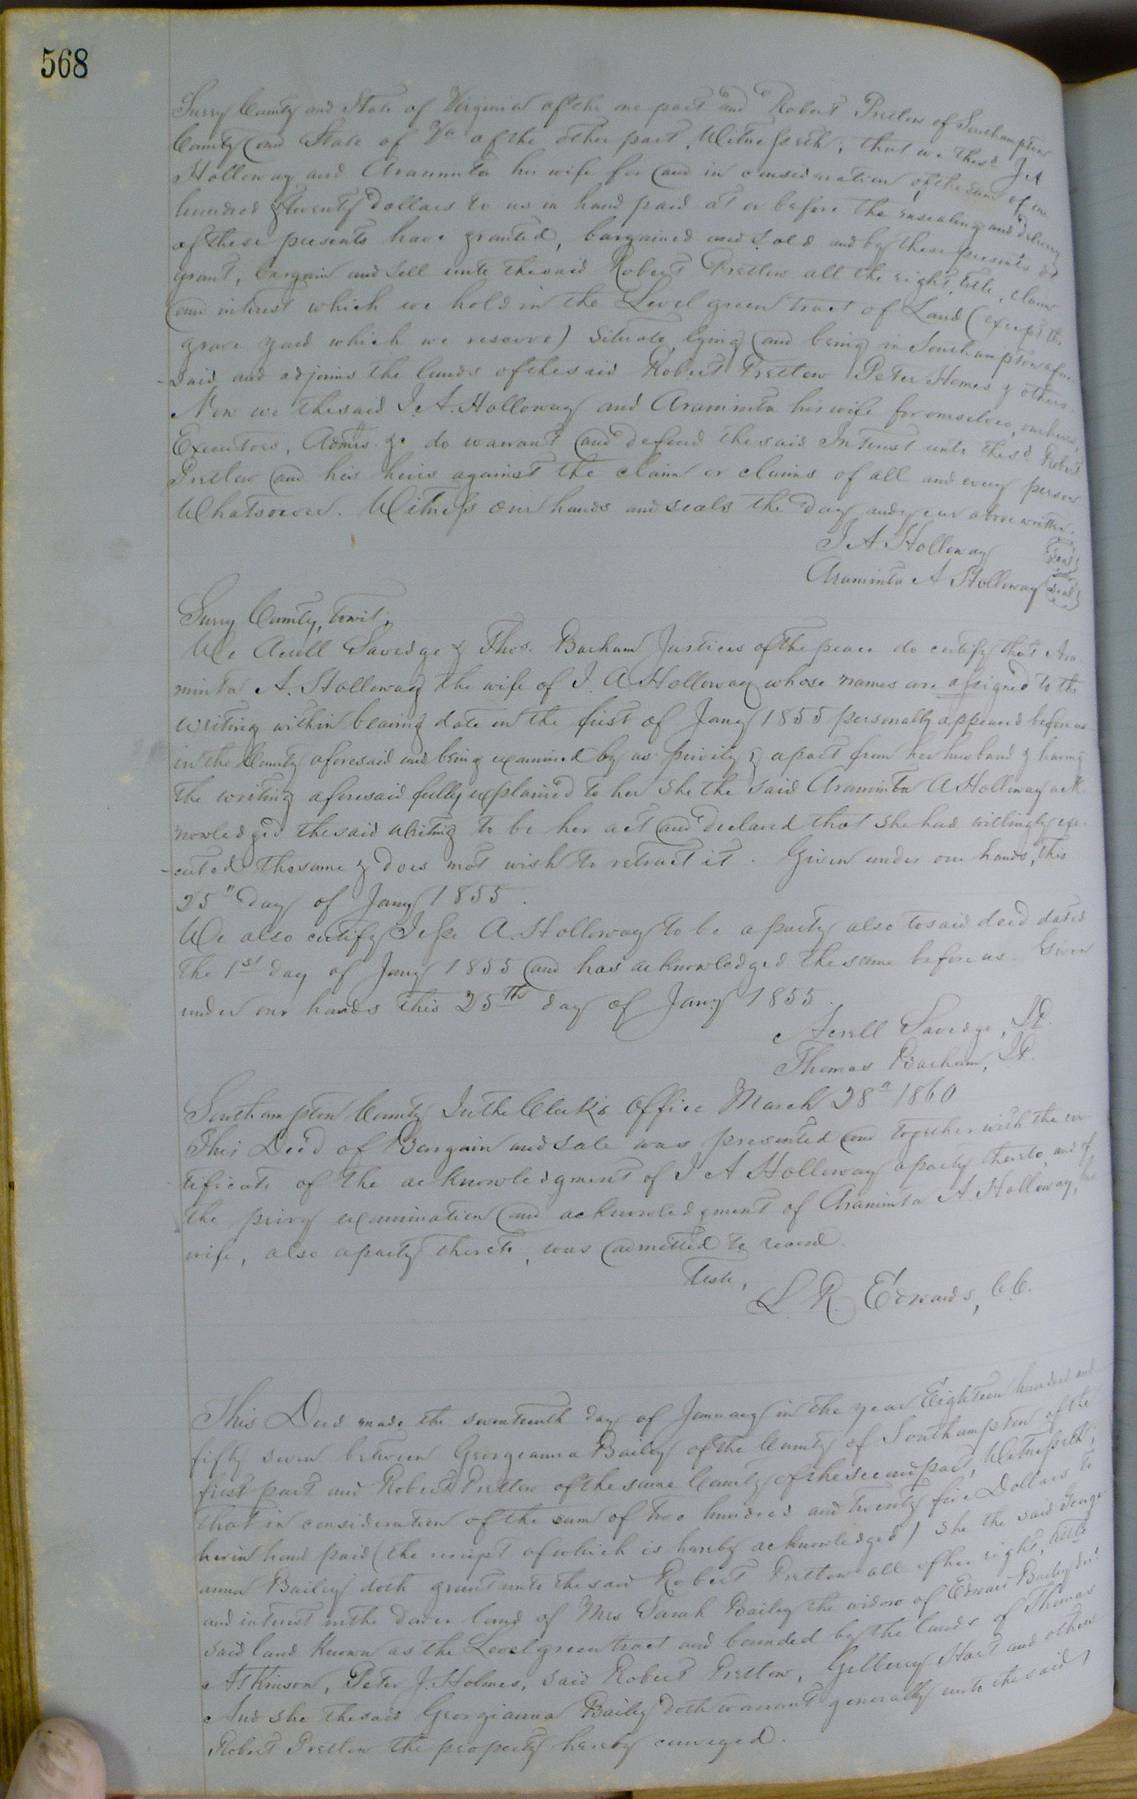 568
Surry County and State of Virginia of the one part and Robert Pretlow of Southampton
County and State of Va of the other part, Witnesseth; that we the sd J A
Holloway and Araminta his wife for and in consideration of the sum of one
hundred & twenty Dollars to us in hand paid at or before the ensealing and delivery
of these presents have granted, bargained and sold and by these presents do
grant, bargain and sell unto the said Robert Pretlow all the right, title, claim
and interest which we hold in the Level green tract of Land (except the
grave yard which we reserve) Situate, lying and being in Southampton afore
-said and adjoins the lands of the said Robert Pretlow Peter Homes & others.
Now we the said J. A. Holloway and Araminta his wife for ourselves, our heirs,
Executors, Admrs. &c do warrant and defend the said Interest unto the sd Robert
Pretlow and his heirs against the claim or claims of all and every person
Whatsoever. Witness our hands and seals the day and year above written.
J A Holloway (seal)
Araminta A Holloway (seal)
Surry County, towit;
We Acrill Savedge & Thos. Barham Justices of the peace do certify that Ara
minta A. Holloway the wife of J. A Holloway whose names are assigned to the
writing within bearing date on the first of Jany 1855 personally appeared before us
in the County aforesaid and being examined by us privily & apart from her husband & having
the writing aforesaid fully explained to her she the said Araminta A Holloway ack
nowledged the said writing to be her act and declared that she had willingly exe-
-cuted the same & does not wish to retract it. Given under our hands, this
25" day of Jany 1855.
We also certify Jesse A. Holloway to be a party also to said deed dated
the 1st day of Jany 1855 and has acknowledged the same before us. Given
under our hands this 25th day of Jany 1855.
Acrill Savedge, J.P.
Thomas Barham, J.P.
Southampton County In the Clerk's Office March 28" 1860
This Deed of Bargain and sale was presented and together with the cer
tificate of the acknowledgment of J A Holloway a party thereto, and of
the privy examination and acknowledgment of Araminta A Holloway, his
wife, also a party thereto, was admitted to record.
Teste,
L. R. Edwards, C.C.
This Deed made the seventeenth day of January in the year Eighteen hundred and
fifty seven between Georgeanna Bailey of the County of Southampton of the
first part and Robert Pretlow of the same County of the second part, Witnesseth;
that in consideration of the sum of two hundred and twenty five Dollars to
her in hand paid (the receipt of which is hereby acknowledged) she the said George
anna Bailey doth grant unto the said Robert Pretlow all of her right, title
and interest in the dower land of Mrs Sarah Bailey the widow of Edward Bailey decd.
Said land known as the Level green tract and bounded by the lands of Thomas
Atkinson, Peter J. Holmes, said Robert Pretlow, Gilberry Hart and others
And she the said Georgianna Bailey doth warrant generally unto the said
Robert Pretlow the property hereby conveyed.